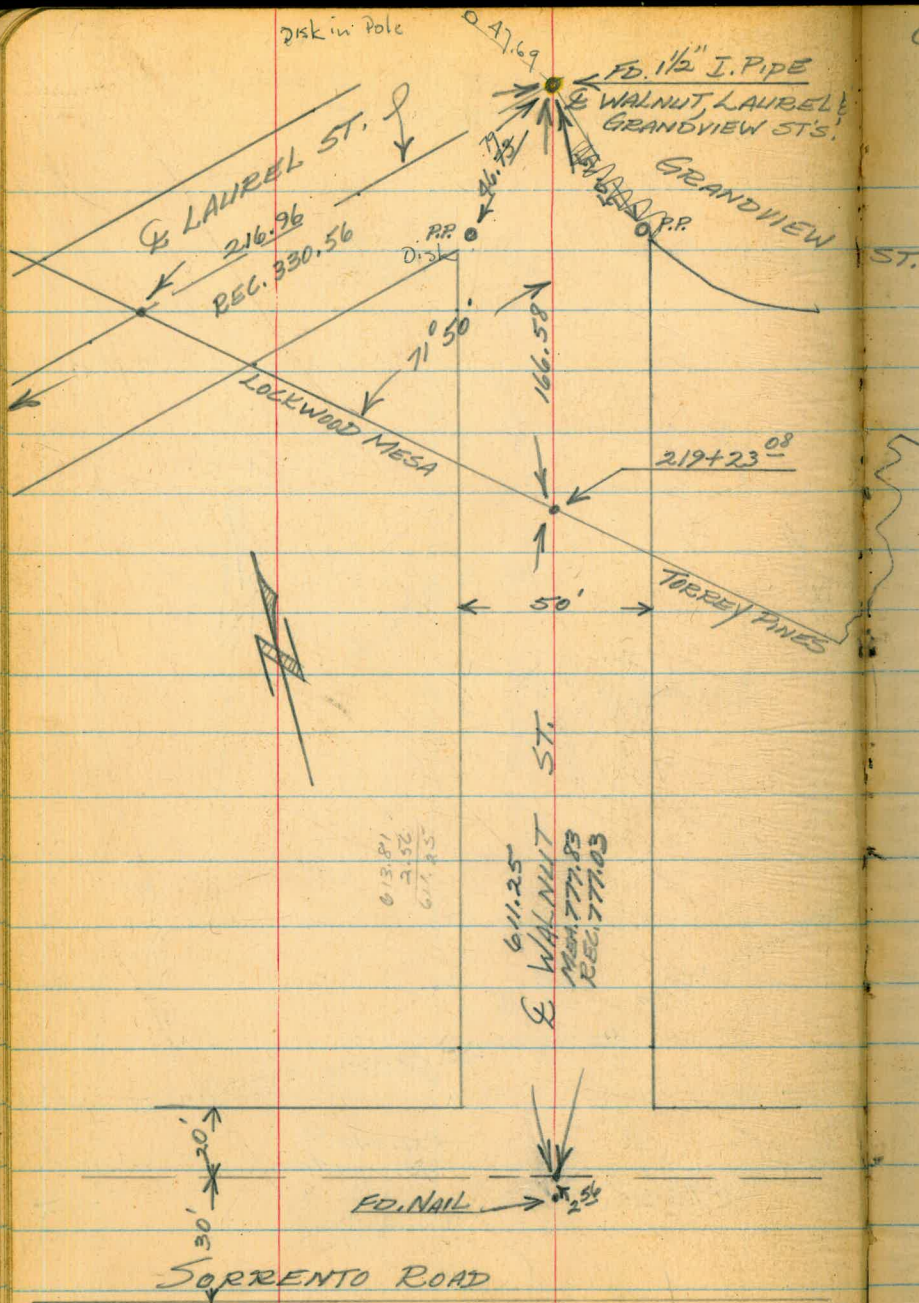 Disk in Pole
47.69
FD. 1 1/2" I. PIPE
℄ WALNUT, LAUREL &
GRANDVIEW ST'S.
℄ LAUREL ST.
216.96
REC. 330.56
P.P.
Disk
P.P.
GRANDVIEW
ST.
71° 50'
166.58
LOCKWOOD MESA
219+23 08
TORREY PINES
50'
613.81
2.56
611.25
611.25
℄ WALNUT ST.
MEA. 777.83
REC. 777.03
20'
30'
FD. NAIL
2 56
SORRENTO ROAD